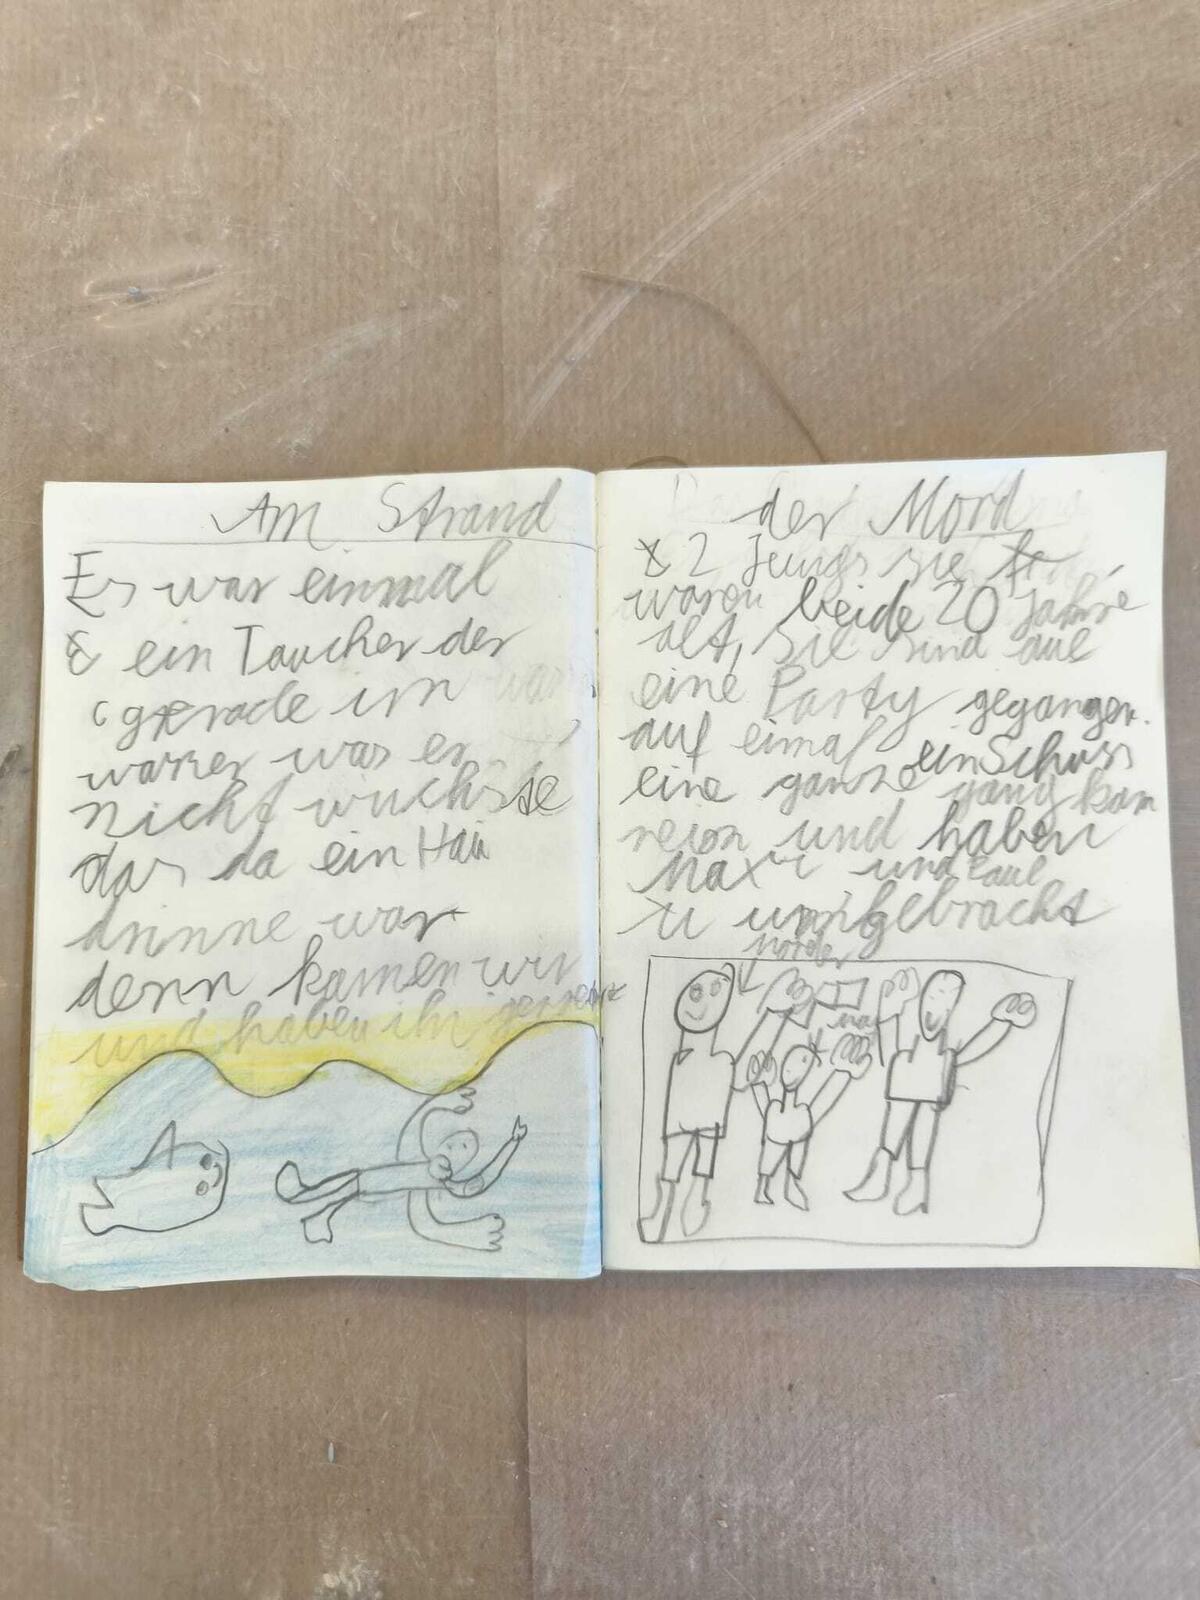 Am Strand
Es war einmal
ein Taucher der
gerade im
warrer was er
nicht wuchste
das da ein Hai
drinne war
denn kamen wir
und haben ihn
der Mord
2 Jungs sie
waren beide 20 Jahre
alt, sie sind auf
eine Party gegangen.
auf eimal ein Schuss
eine ganze gang kam
reion und haben
Maxi und Paul
umgebracht
mörder